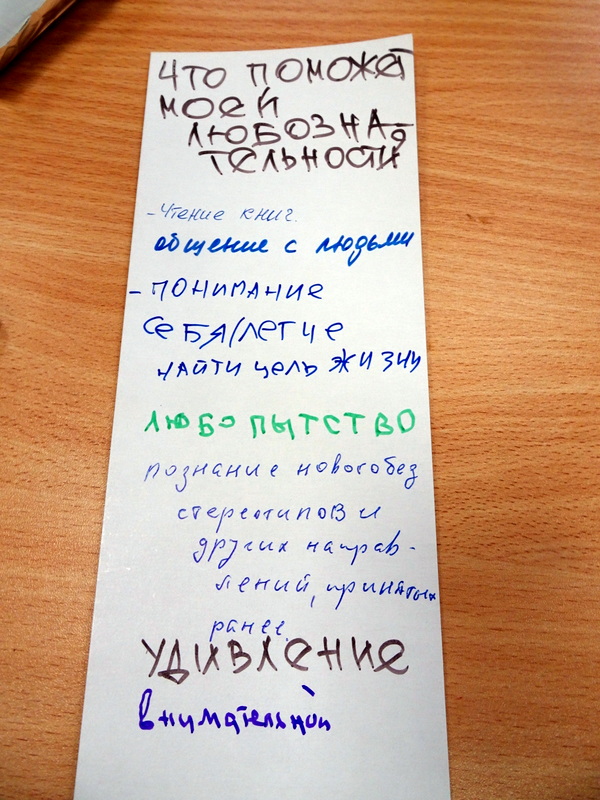 ЧТО ПОМОЖЕТ
МОЕЙ
ЛЮБОЗНА-
ТЕЛЬНОСТИ
- Чтение книг.
общение с людьми
- ПОНИМАНИЕ
СЕБЯ/ЛЕГЧЕ
НАЙТИ цель ЖИЗНИ
ЛЮБОПЫТСТВО
познание нового без
стереотипов и
других направ-
лений, принятых
ранее.
УДИВЛЕНИЕ
внимательной